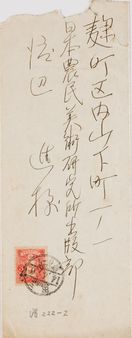 麹町区内山下町一ノ一
日本農民美術研究所出版部
渡辺 進様
渡222-2